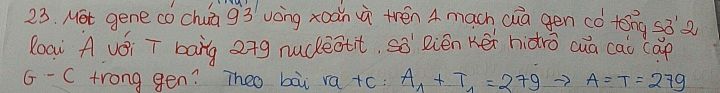 23. Một gene có chứa 93 vòng xoắn và trên 1 mạch của gen có tổng số 2
loại A với T bằng 279 nuclêôtit. số liên kết hiđrô của các cặp
G - C trong gen? Theo bài ra tc: A₁ + T₁ = 279 → A = T = 279